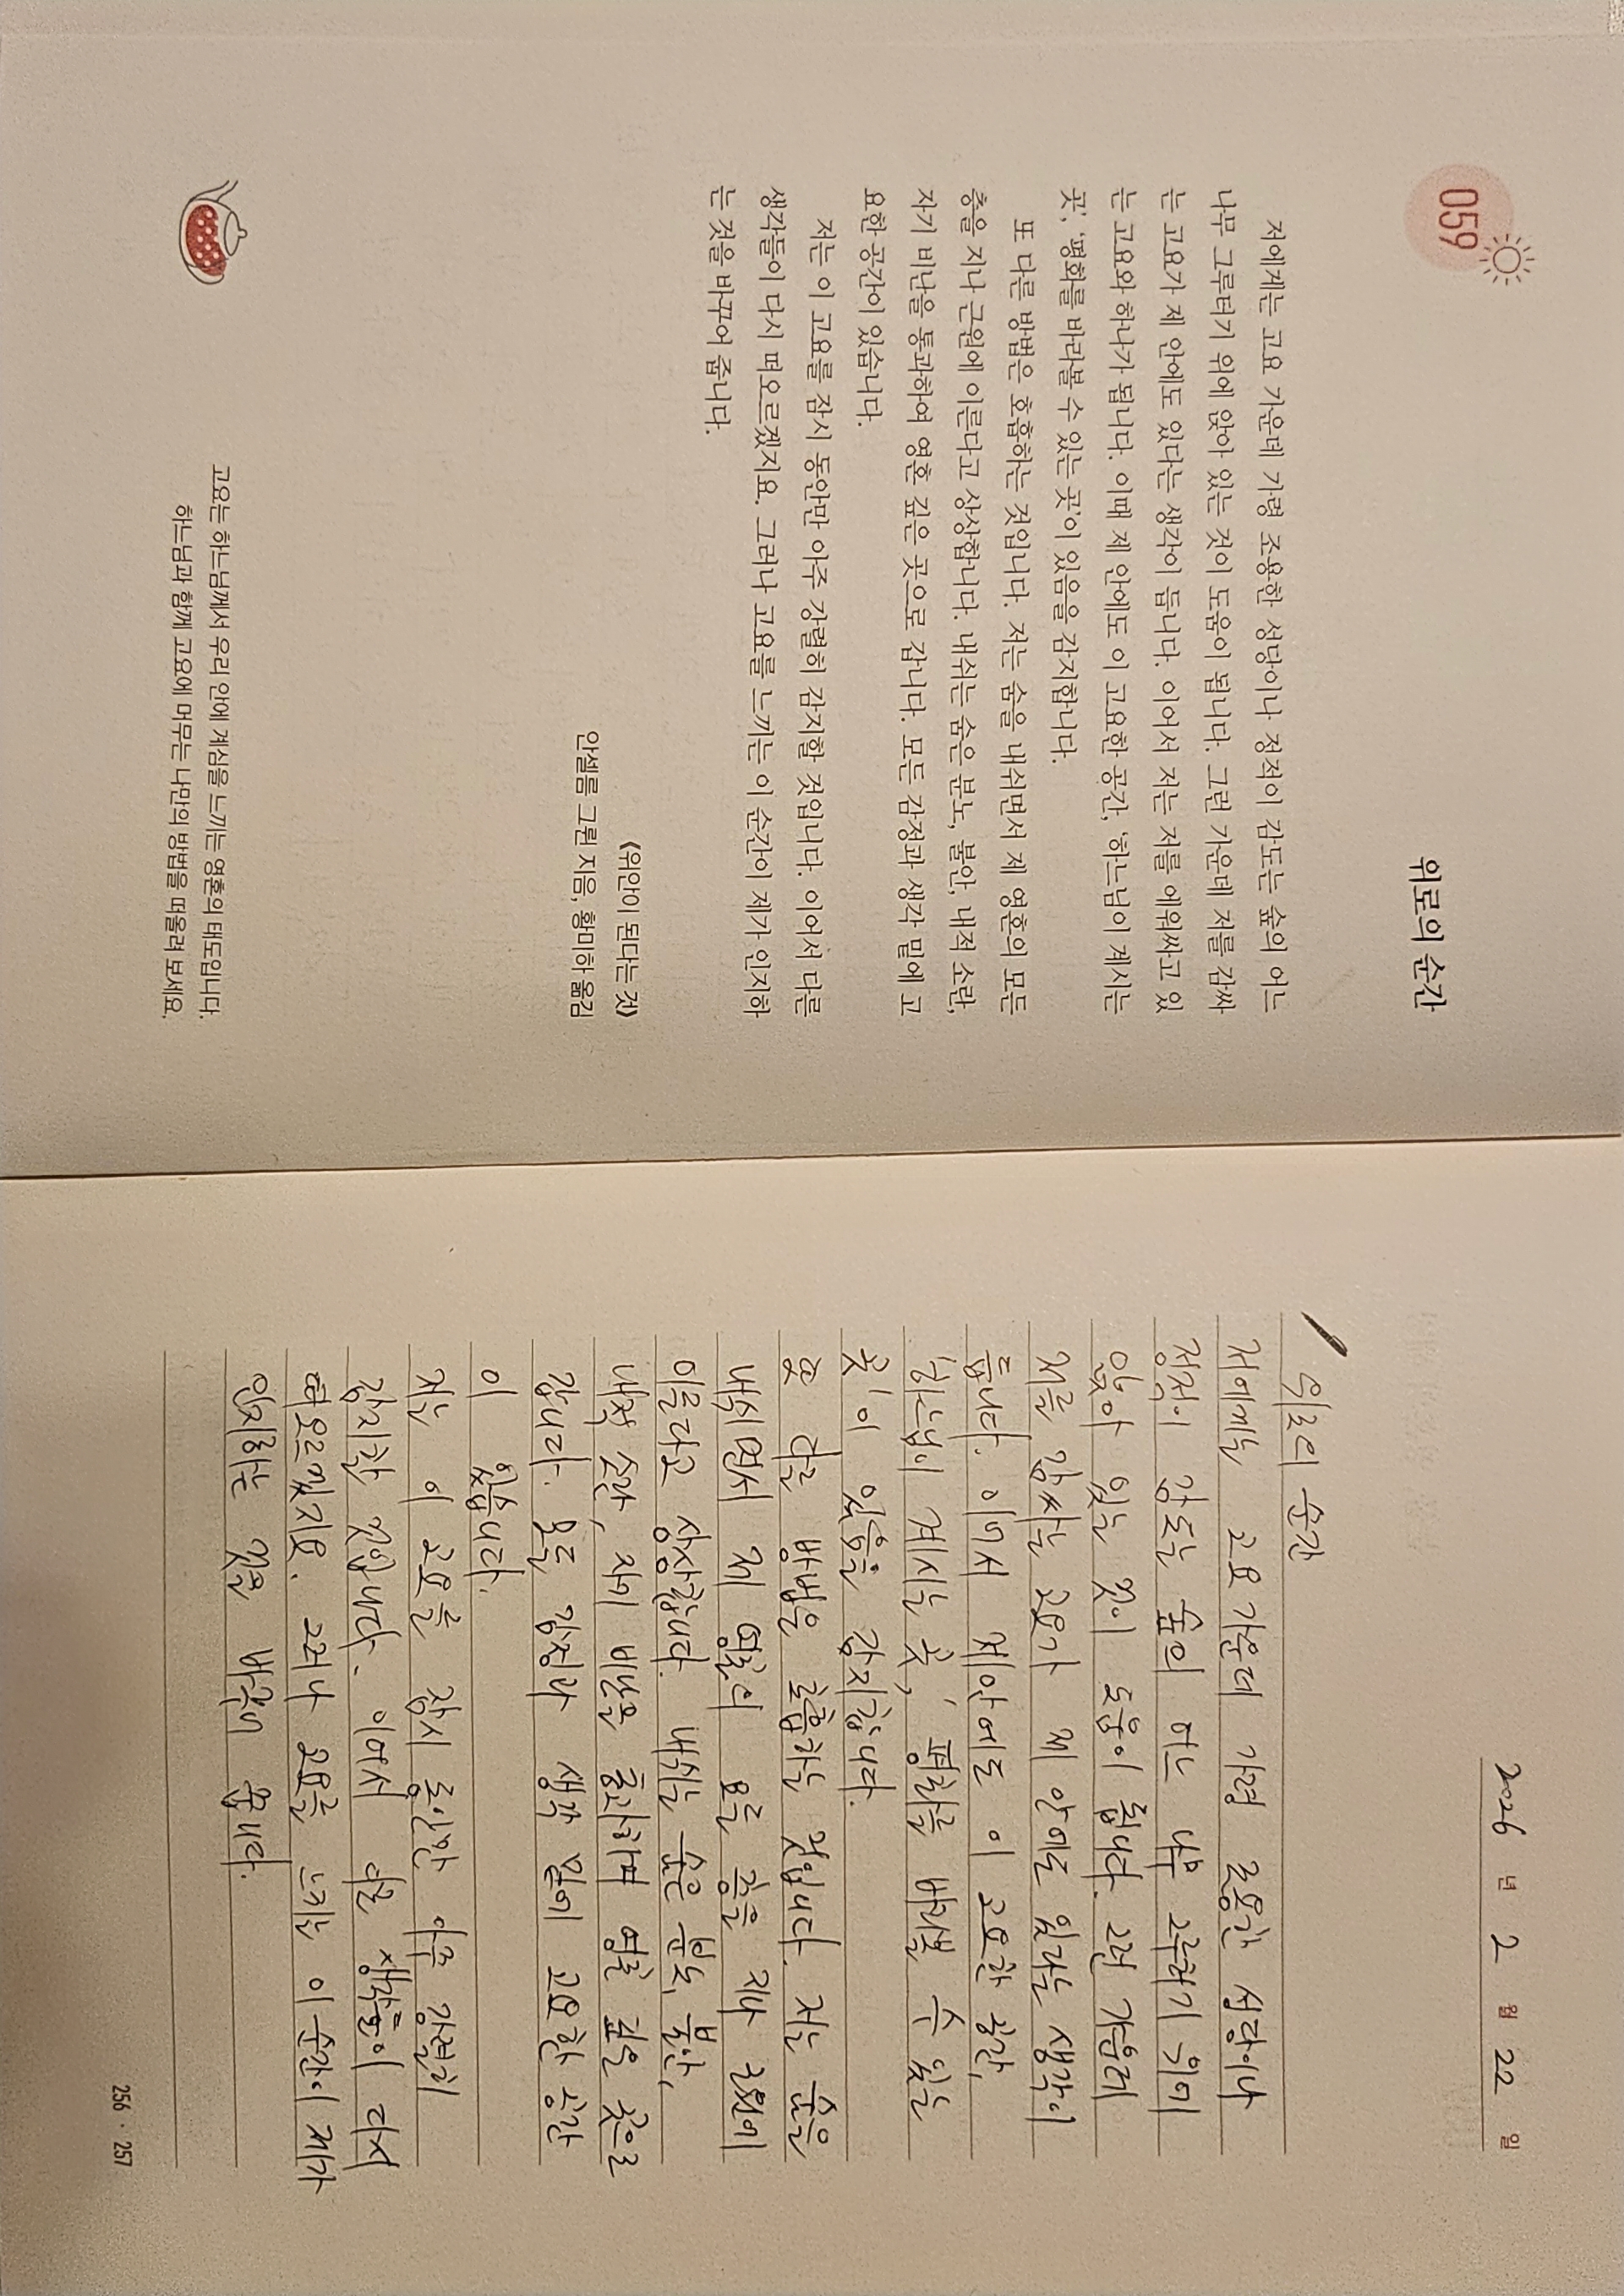 059
위로의 순간
저에게는 고요 가운데 가령 조용한 성당이나 정적이 감도는 숲의 어느
나무 그루터기 위에 앉아 있는 것이 도움이 됩니다. 그런 가운데 저를 감싸
는 고요가 제 안에도 있다는 생각이 듭니다. 이어서 저는 저를 에워싸고 있
는 고요와 하나가 됩니다. 이때 제 안에도 이 고요한 공간, ‘하느님이 계시는
곳’, ‘평화를 바라볼 수 있는 곳’이 있음을 감지합니다.
또 다른 방법은 호흡하는 것입니다. 저는 숨을 내쉬면서 제 영혼의 모든
층을 지나 근원에 이른다고 상상합니다. 내쉬는 숨은 분노, 불안, 내적 소란,
자기 비난을 통과하여 영혼 깊은 곳으로 갑니다. 모든 감정과 생각 밑에 고
요한 공간이 있습니다.
저는 이 고요를 잠시 동안만 아주 강렬히 감지할 것입니다. 이어서 다른
생각들이 다시 떠오르겠지요. 그러나 고요를 느끼는 이 순간이 제가 인지하
는 것을 바꾸어 줍니다.
《위안이 된다는 것》
안셀름 그륀 지음, 황미하 옮김
고요는 하느님께서 우리 안에 계심을 느끼는 영혼의 태도입니다.
하느님과 함께 고요에 머무는 나만의 방법을 떠올려 보세요.
2026 년 2 월 22 일
위로의 순간
저에게는 고요 가운데 가령 조용한 성당이나
정적이 감도는 숲의 어느 나무 그루터기 위에
앉아 있는 것이 도움이 됩니다. 그런 가운데
저를 감싸는 고요가 제 안에도 있다는 생각이
듭니다. 이어서 제 안에도 이 고요한 공간,
‘하느님이 계시는 곳’, ‘평화를 바라볼 수 있는
곳’이 있음을 감지합니다.
또 다른 방법은 호흡하는 것입니다. 저는 숨을
내쉬면서 제 영혼의 모든 층을 지나 근원에
이른다고 상상합니다. 내쉬는 숨은 분노, 불안,
내적 소란, 자기 비난을 통과하여 영혼 깊은 곳으로
갑니다. 모든 감정과 생각 밑에 고요한 공간
이 있습니다.
저는 이 고요를 잠시 동안만 아주 강렬히
감지할 것입니다. 이어서 다른 생각들이 다시
떠오르겠지요. 그러나 고요를 느끼는 이 순간이 제가
인지하는 것을 바꾸어 줍니다.
256 · 257